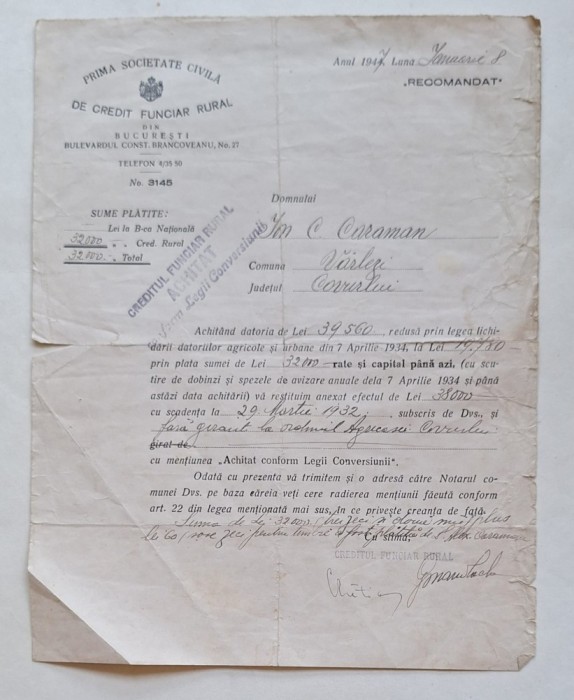 PRIMA SOCIETATE CIVILA
DE CREDIT FUNCIAR RURAL
DIN
BUCUREȘTI
BULEVARDUL CONST. BRANCOVEANU, No. 27
TELEFON 4/35 50
No. 3145
Anul 1947 Luna Ianuarie 8
„RECOMANDAT“
SUME PLĂTITE:
Lei la B-ca Națională
32000 „ „ Cred. Rural
32000.- „ Total
CREDITUL FUNCIAR RURAL
ACHITAT
conform Legii Conversiunii
Domnului
Ion C Caraman
Comuna Vârlezi
Județul Covurlui
Achitând datoria de Lei 39560, redusă prin legea lichi-
dării datoriilor agricole și urbane din 7 Aprilie 1934, la Lei 19.780
prin plata sumei de Lei 32000 rate și capital până azi, (cu scu-
tire de dobinzi și spezele de avizare anuale dela 7 Aprilie 1934 și până
astăzi data achitării) vă restituim anexat efectul de Lei 38000
cu scadența la 29 Martie 1932, subscris de Dvs., și
fără girant la ordinul Agricolei Covurlui
girat de
cu mențiunea „Achitat conform Legii Conversiunii“.
Odată cu prezenta vă trimitem și o adresă către Notarul co-
munei Dvs. pe baza căreia veți cere radierea mențiunii făcută conform
art. 22 din legea menționată mai sus, în ce privește creanța de față.
Suma de lei 32000 (treizeci și două mii) plus
lei 60, șase zeci pentru timbre a fost plătită de Alex. Caraman
Cu stimă,
CREDITUL FUNCIAR RURAL